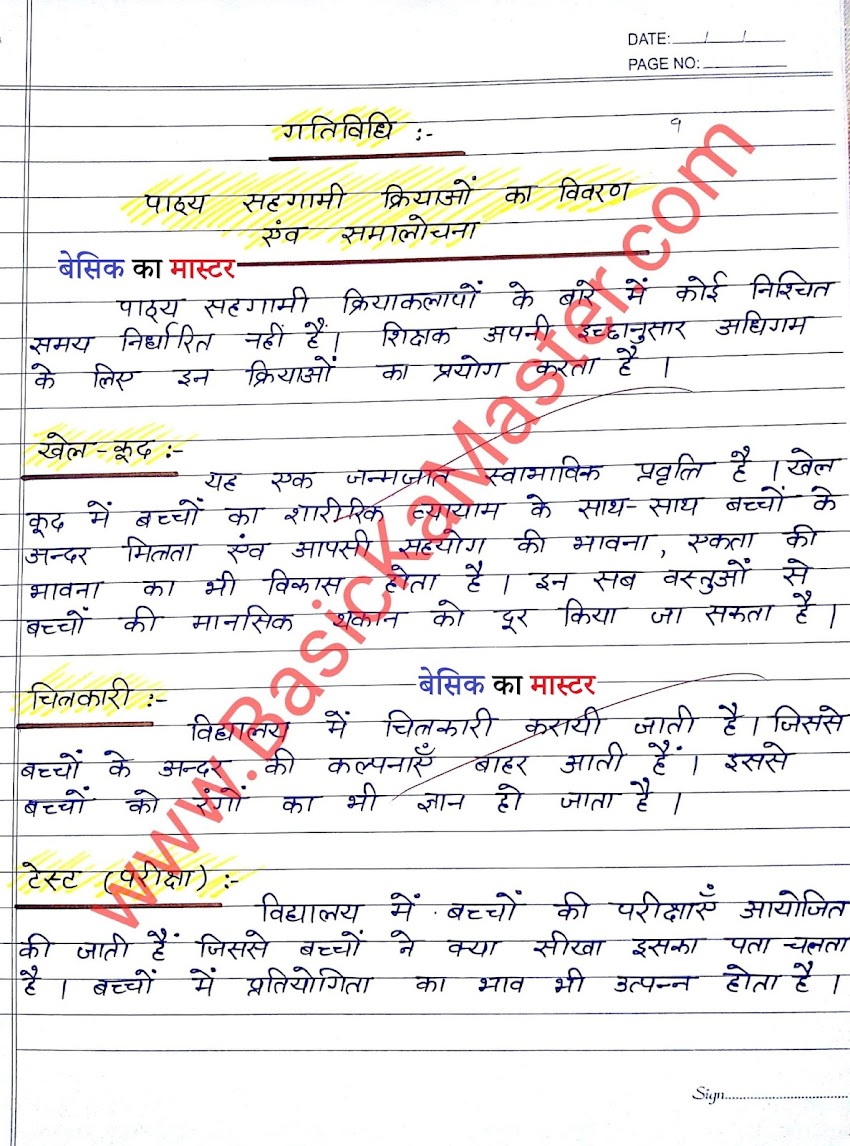 DATE: / /
PAGE NO:
गतिविधि :-
१
पाठ्य सहगामी क्रियाओं का विवरण
एंव समालोचना
बेसिक का मास्टर
पाठ्य सहगामी क्रियाकलापों के बारे में कोई निश्चित
समय निर्धारित नहीं है। शिक्षक अपनी इच्छानुसार अधिगम
के लिए इन क्रियाओं का प्रयोग करता है ।
खेल - कूद :-
यह एक जन्मजात स्वाभाविक प्रवृत्ति है । खेल
कूद में बच्चों का शारीरिक व्यायाम के साथ-साथ बच्चों के
अन्दर मित्रता एंव आपसी सहयोग की भावना , एकता की
भावना का भी विकास होता है । इन सब वस्तुओं से
बच्चों की मानसिक थकान को दूर किया जा सकता है ।
बेसिक का मास्टर
चित्रकारी :-
विद्यालय में चित्रकारी करायी जाती है । जिससे
बच्चों के अन्दर की कल्पनाएँ बाहर आती हैं । इससे
बच्चों को रंगों का भी ज्ञान हो जाता है ।
टेस्ट (परीक्षा) :-
विद्यालय में बच्चों की परीक्षाएँ आयोजित
की जाती हैं जिससे बच्चों ने क्या सीखा इसका पता चलता
है । बच्चों में प्रतियोगिता का भाव भी उत्पन्न होता है ।
www.BasicKaMaster.com
Sign..............................